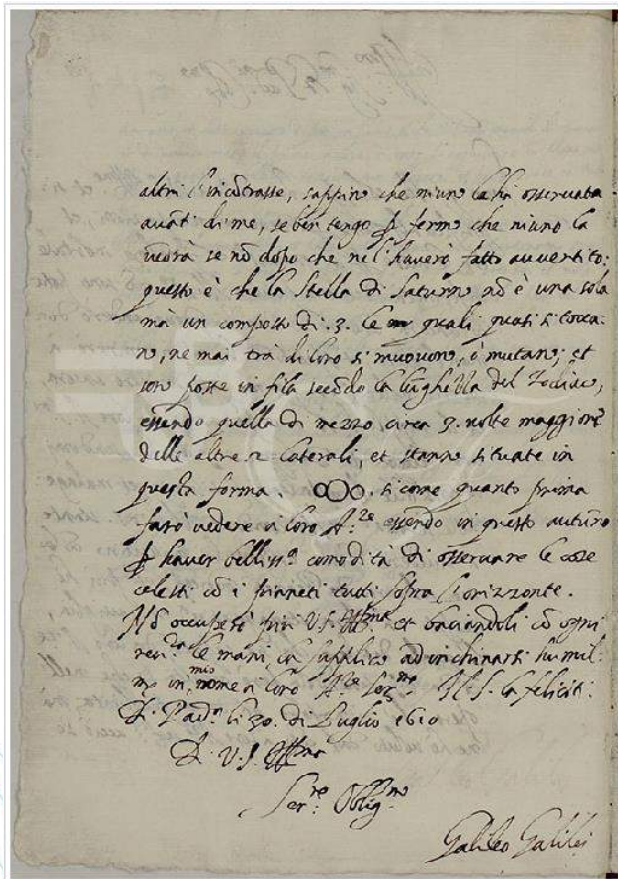 altri l'incõtrasse, sappino che niuno la hà osservata
avãti di me, se ben tengo p fermo che niuno la
vedrà se nõ dopo che ne l'haverò fatto avvertito:
questo è che la Stella di Saturno nõ è una sola
mà un composto di .3. le quali quasi si tocca-
no, ne mai trà di loro si muovono, ò mutano; et
son poste in fila secõdo la lũghezza del Zodiaco,
essendo quella di mezzo circa 3. volte maggiore
delle altre 2 laterali, et stanno situate in
questa forma. oOo. si come quanto prima
farò vedere a loro A.ze essendo in questo autũno
p haver belliss.a comodità di osservare le cose
celesti cõ i pianeti tutti sopra l'orizzonte.
Nõ occuperò più V.S. Ill.ma et baciandoli cõ ogni
rev.za le mani, la supplico ad inchinarsi humil.
in mio nome a loro A.ze Ser.me. Il S. la feliciti.
D. Pad.a li 30. di Luglio 1610
D. V.S. Ill.ma
Ser.re Oblig.mo
Galileo Galilei